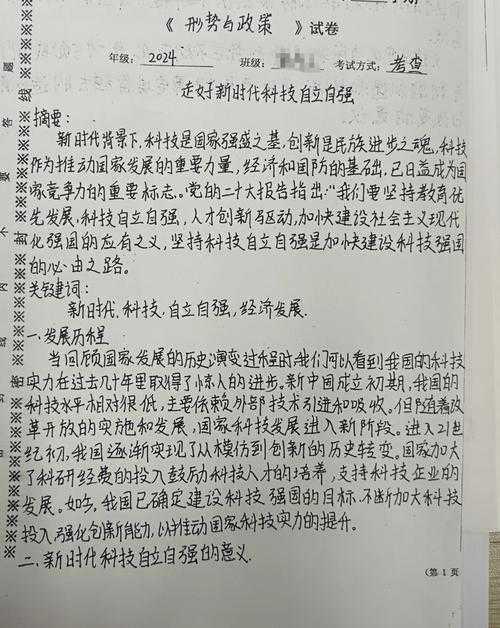 《 形势与政策 》试卷
年级: 2024 班级: 考试方式: 考查
走好新时代科技自立自强
摘要:
新时代背景下,科技是国家强盛之基,创新是民族进步之魂,科技
作为推动国家发展的重要力量,经济和国防的基础,已日益成为国
家竞争力的重要标志。党的二十大报告指出:"我们要坚持教育优
先发展,科技自立自强,人才创新驱动,加快建设社会主义现代
化强国的应有之义,坚持科技自立自强是加快建设科技强国
的必由之路。
关键词:
新时代,科技,自立自强,经济发展.
一.发展历程
当回顾国家发展的历史演变过程时,我们可以看到我国的科技
实力在过去几十年里取得了惊人的进步。新中国成立初期,我国的
科技水平相对很低,主要依赖外部技术引进和吸收。但随着改
革开放的实施和发展,国家科技发展进入新阶段。进入21世
纪初,我国逐渐实现了从模仿到创新的历史转变。国家加大
了科研经费的投入鼓励科技人才的培养,支持科技企业的
发展。如今,我国已确定建设科技强国的目标,不断加大科技
投入,强化创新能力,以推动国家科技实力的提升。
二.新时代科技自立自强的意义.
(第 1 页